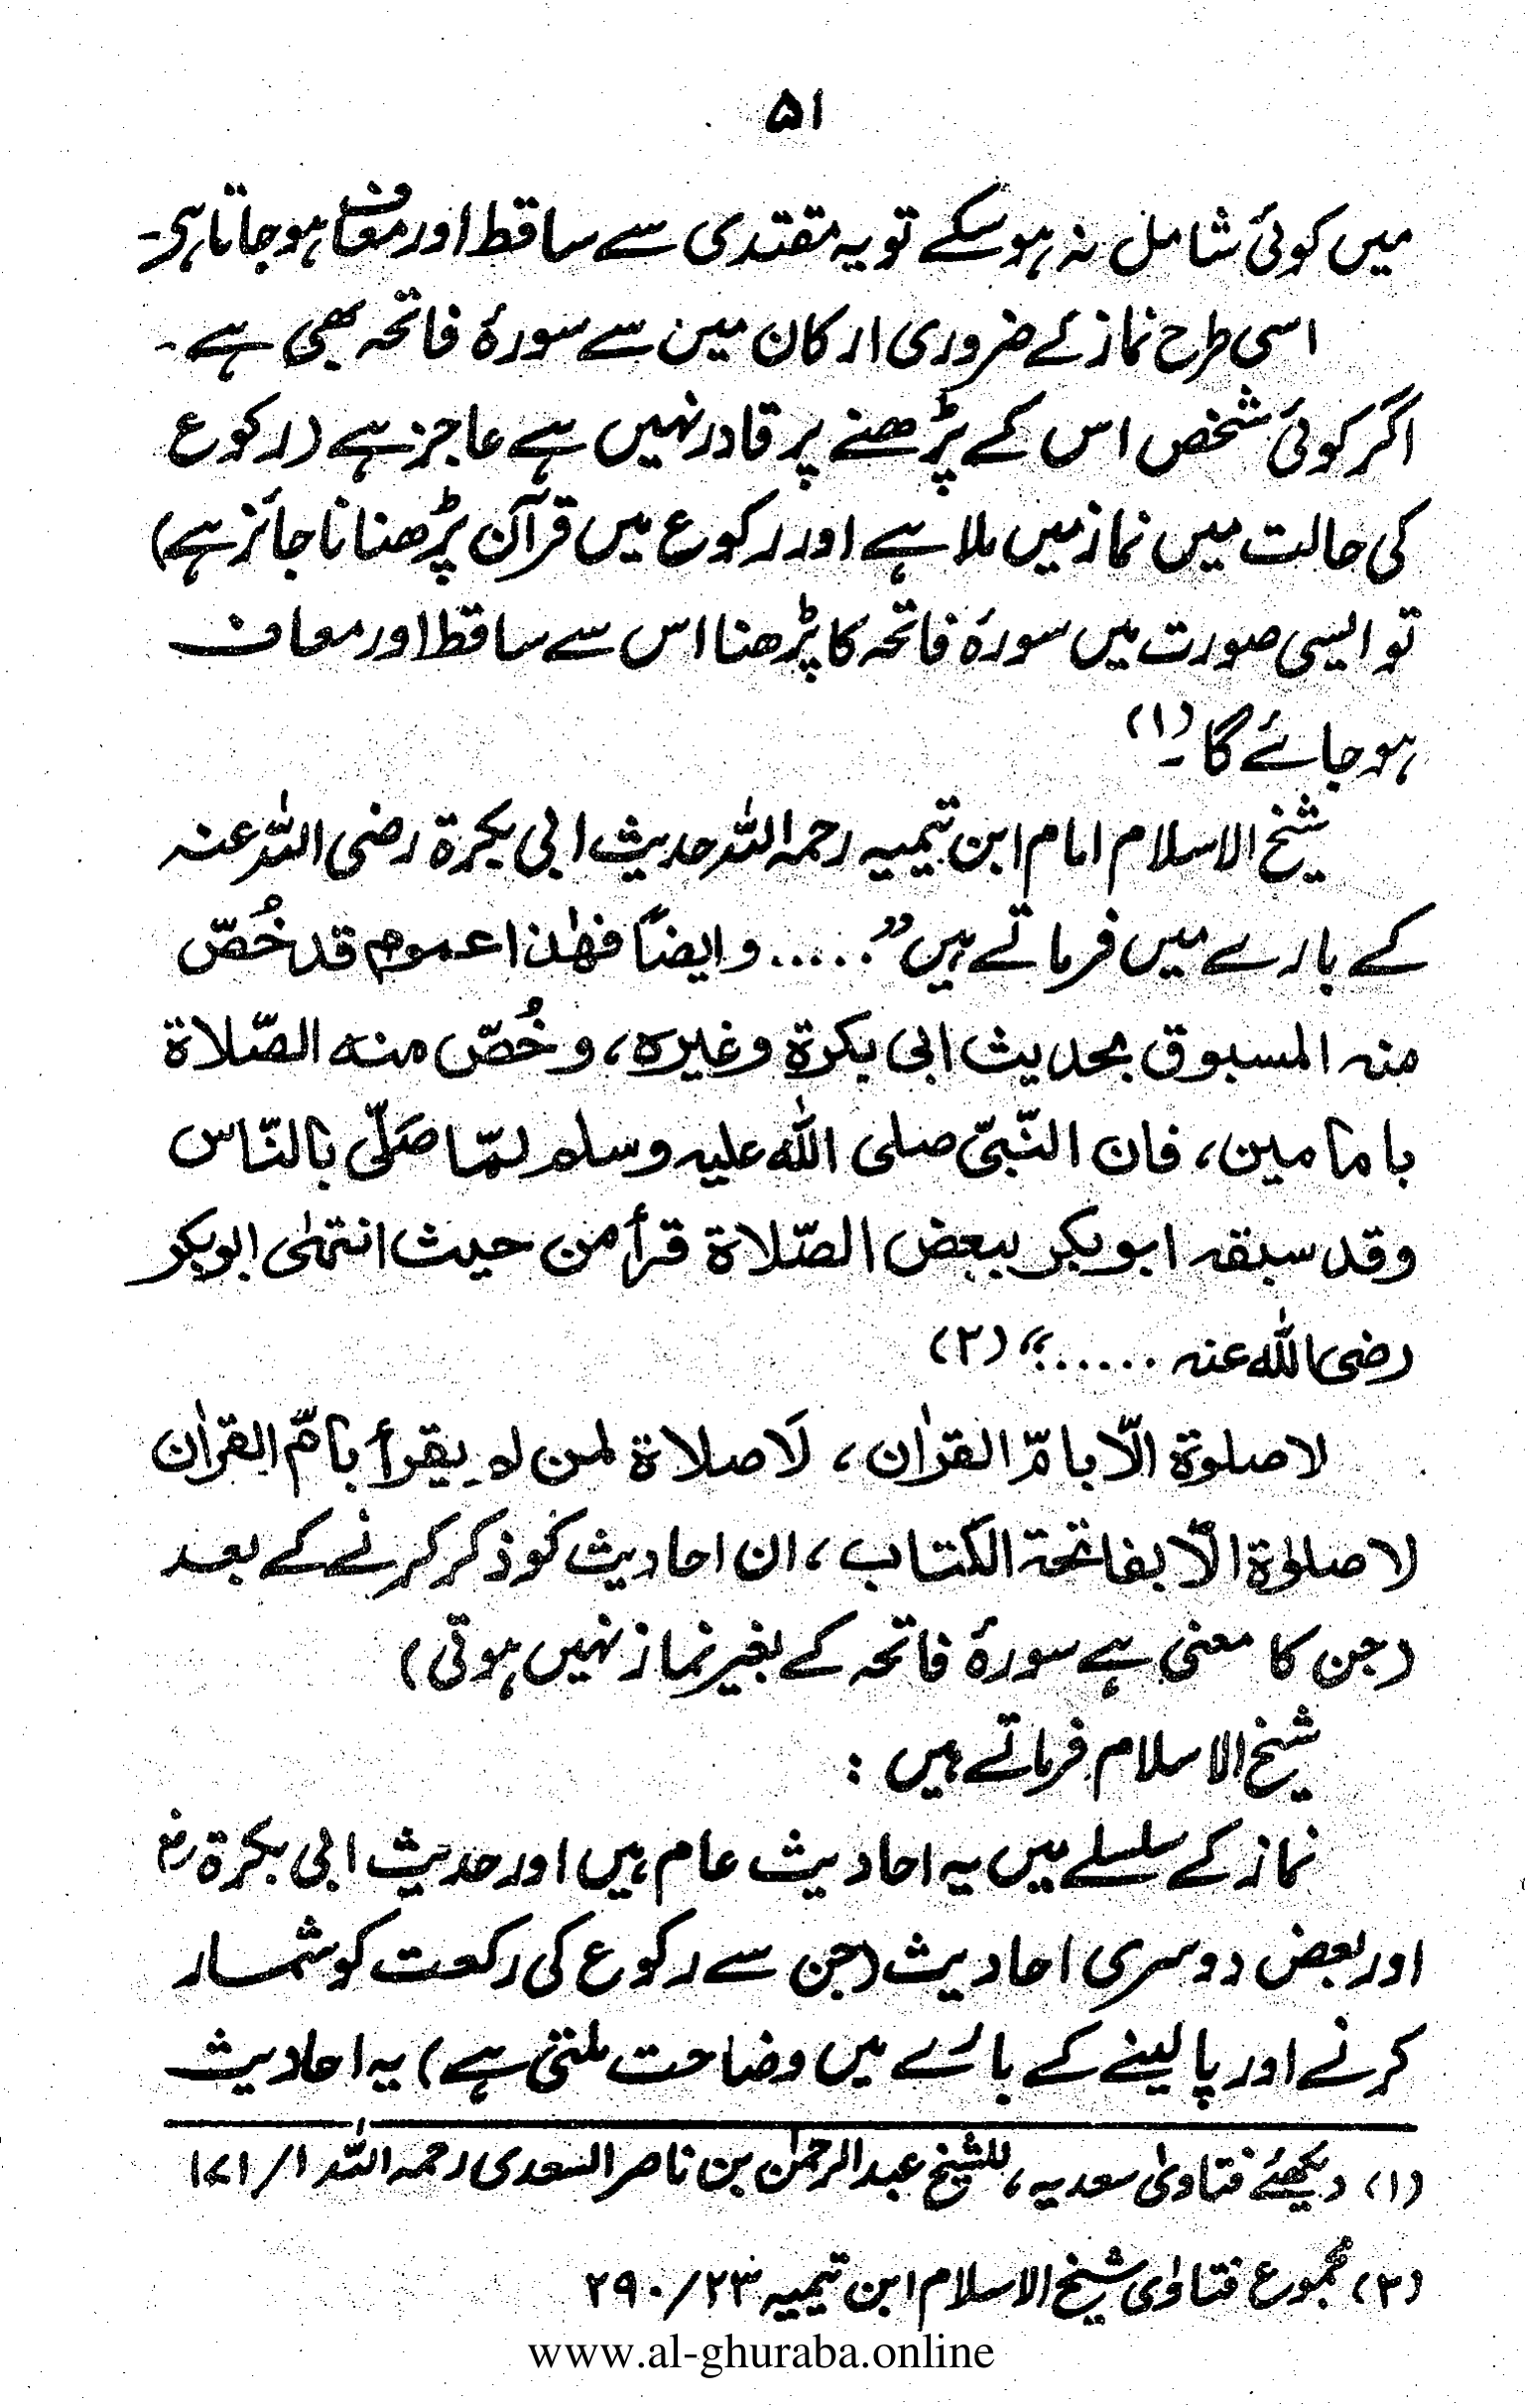 ۵۱
میں کوئی شامل نہ ہوسکے تو یہ مقتدی سے ساقط اور معاف ہوجاتا ہی۔
اسی طرح نماز کے ضروری ارکان میں سے سورۂ فاتحہ بھی ہے۔
اگر کوئی شخص اس کے پڑھنے پر قادر نہیں ہے عاجز ہے (رکوع
کی حالت میں نماز میں ملا ہے اور رکوع میں قرآن پڑھنا ناجائز ہے)
تو ایسی صورت میں سورۂ فاتحہ کا پڑھنا اس سے ساقط اور معاف
ہوجائے گا۔(۱)
شیخ الاسلام امام ابن تیمیہ رحمہ اللہ حدیث ابی بکرۃ رضی اللہ عنہ
کے بارے میں فرماتے ہیں ”..... وایضاً فھٰذا عموم قد خُصّ
منہ المسبوق بحدیث ابی بکرۃ وغیرہ، وخُصّ منہ الصّلاۃ
بامامین، فان النّبیّ صلی اللہ علیہ وسلم لمّا صَلّی بالنّاس
وقد سبقہ ابوبکر ببعض الصّلاۃ قرأ من حیث انتھٰی ابوبکر
رضی اللہ عنہ ......“ (۲)
لا صلوۃ الّا بامّ القرٰان، لَا صلاۃ لمن لم یقرأ بامّ القرٰان
لا صلوٰۃ الّا بفاتحۃ الکتاب، ان احادیث کو ذکر کرنے کے بعد
(جن کا معنی ہے سورۂ فاتحہ کے بغیر نماز نہیں ہوتی)
شیخ الاسلام فرماتے ہیں :
نماز کے سلسلے میں یہ احادیث عام ہیں اور حدیث ابی بکرۃ رضؓ
اور بعض دوسری احادیث (جن سے رکوع کی رکعت کو شمار
کرنے اور پالینے کے بارے میں وضاحت ملتی ہے) یہ احادیث
(۱) دیکھئے فتاویٰ سعدیہ، للشیخ عبدالرحمٰن بن ناصر السعدی رحمہ اللہ ۱/۱۷۱
(۲) مجموع فتاوٰی شیخ الاسلام ابن تیمیہ ۲۳/۲۹۰
www.al-ghuraba.online